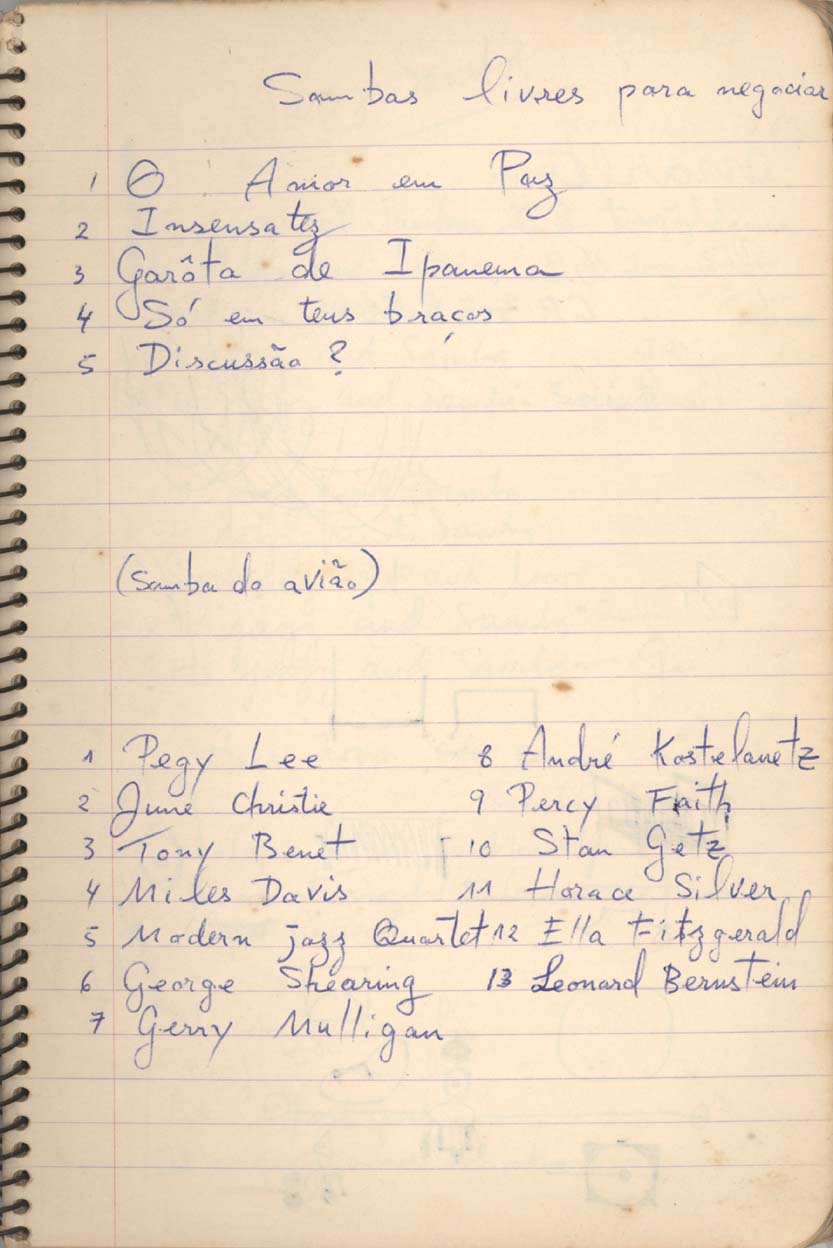 Sambas livres para negociar
1 O Amor em Paz
2 Insensatez
3 Garôta de Ipanema
4 Só em teus braços
5 Discussão ?
(Samba do avião)
1 Pegy Lee
2 June Christie
3 Tony Benet
4 Miles Davis
5 Modern jazz Quartet
6 George Shearing
7 Gerry Mulligan
8 André Kostelanetz
9 Percy Faith
10 Stan Getz
11 Horace Silver
12 Ella Fitzgerald
13 Leonard Bernstein